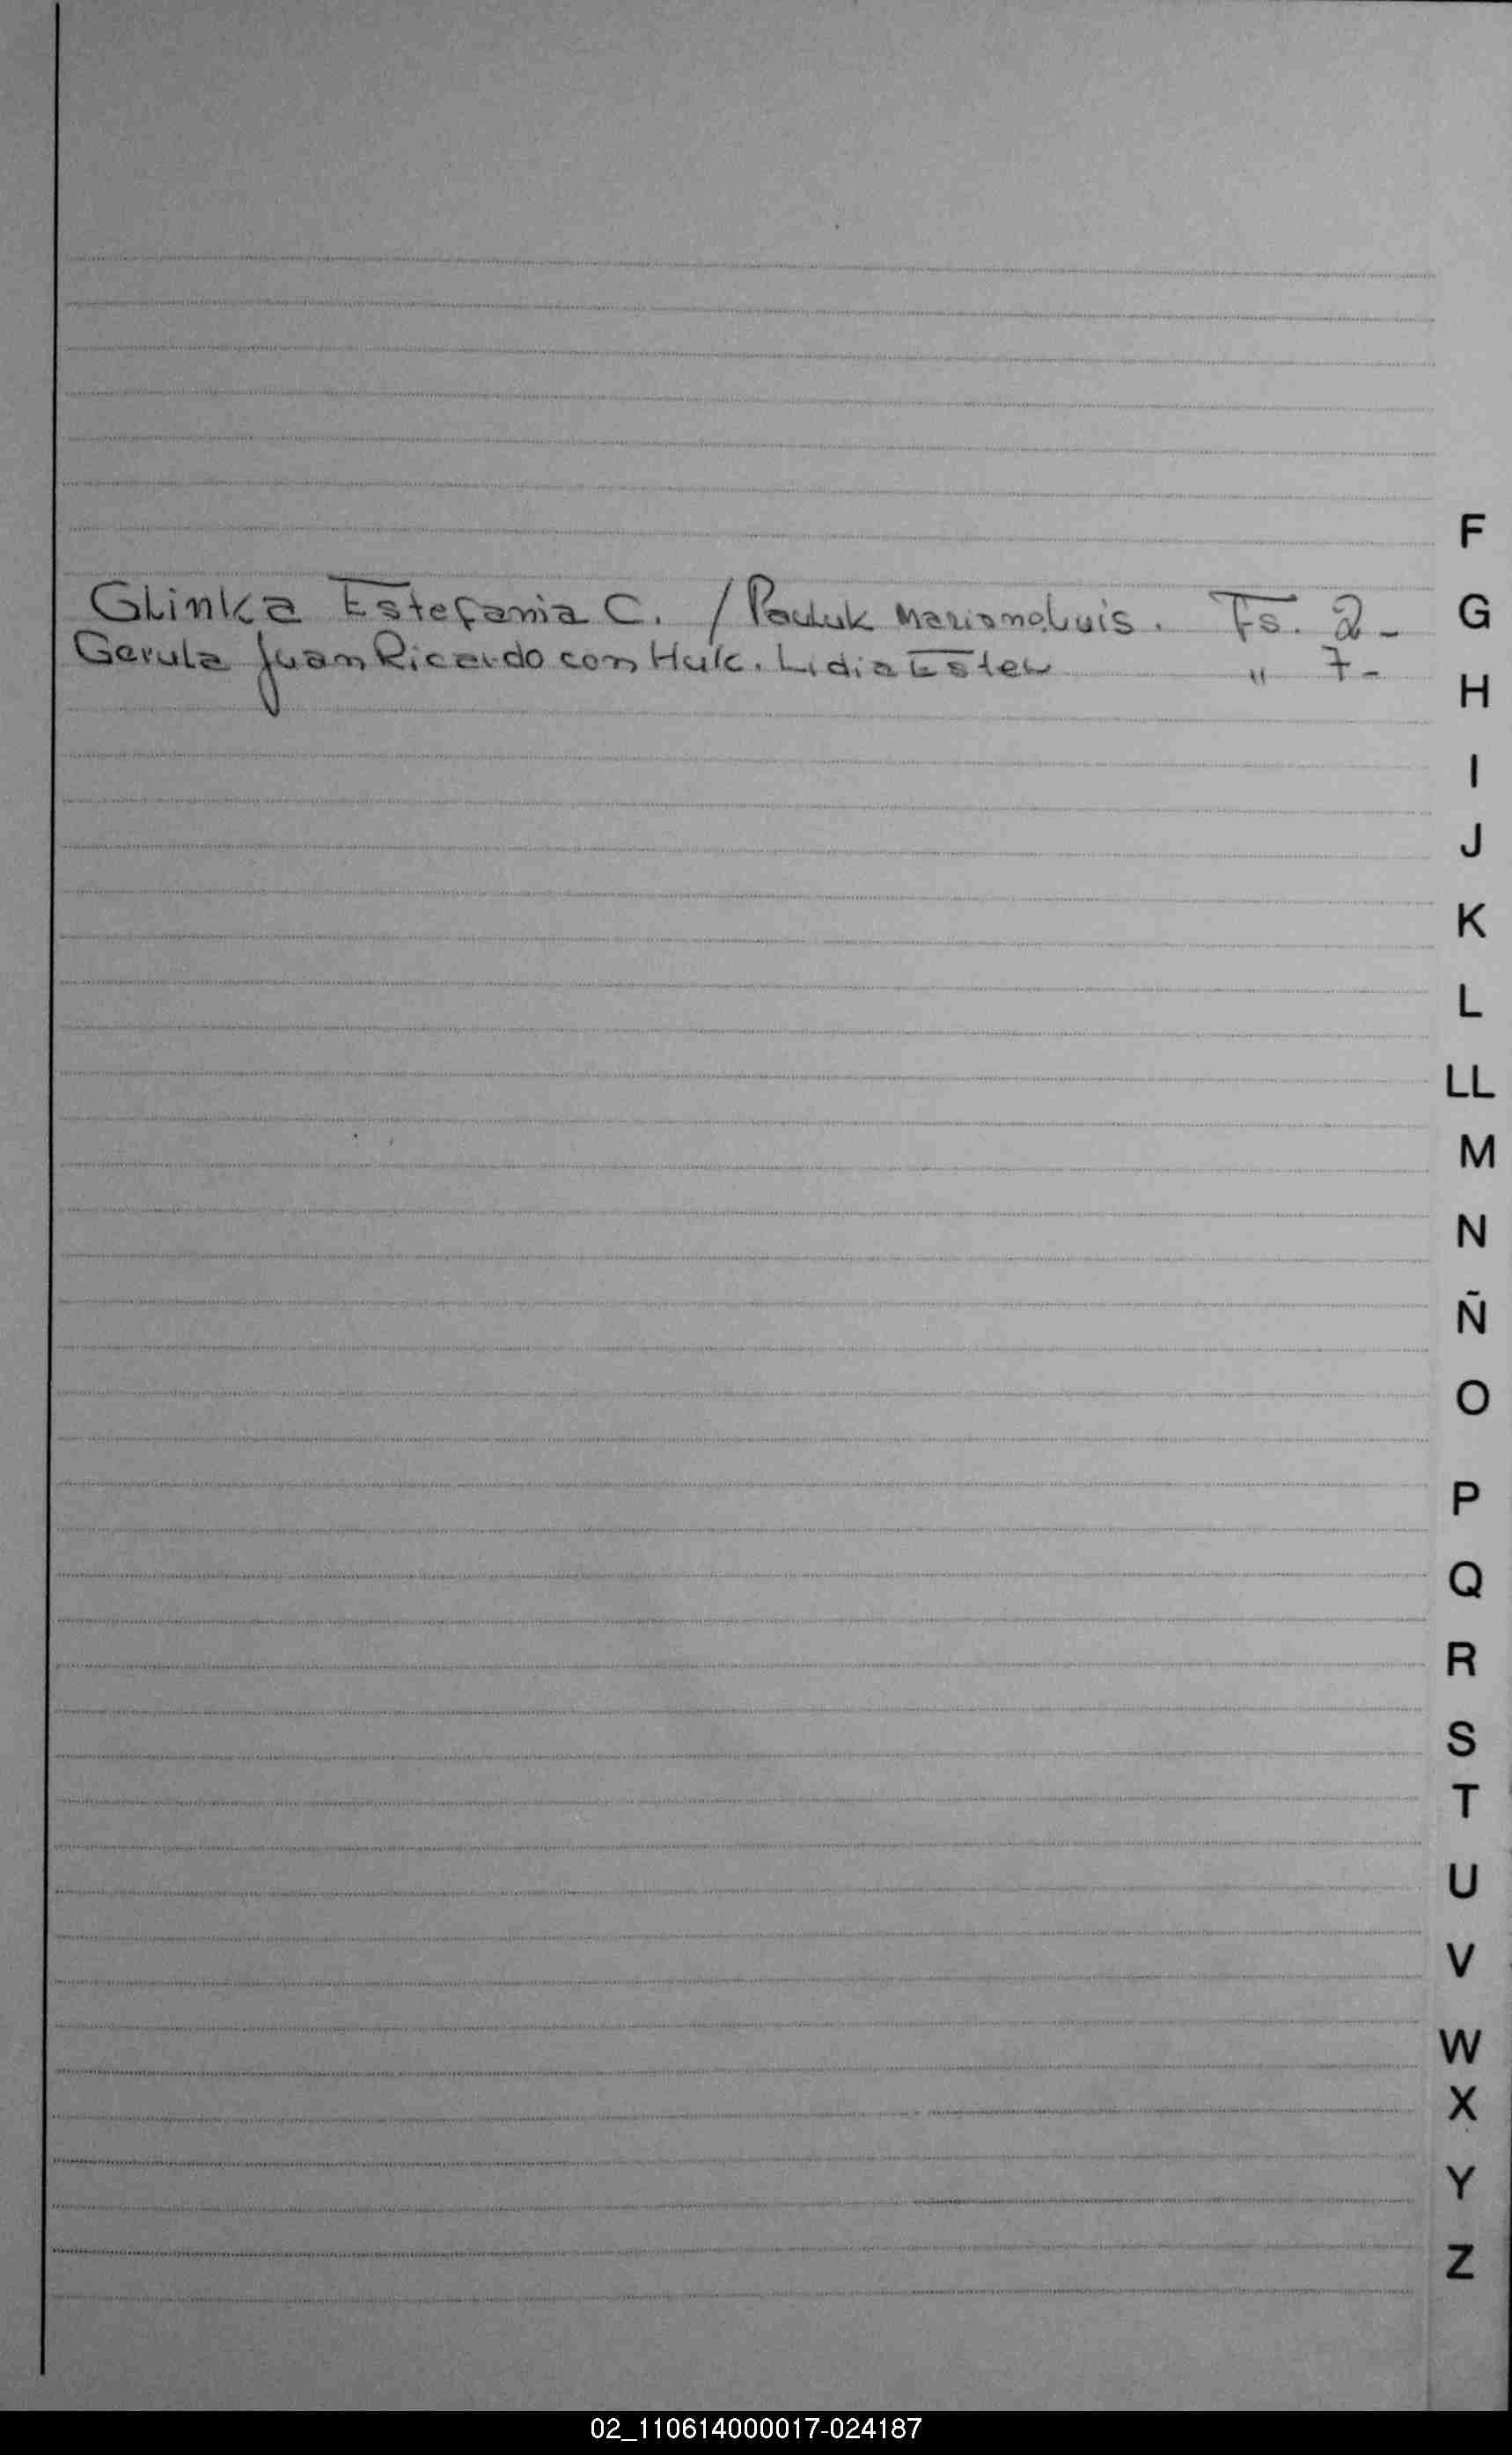 F
Glinka Estefania C. / Pauluk Mariano Luis. Fs. 2-
G
Gerula Juan Ricardo con Huk. Lidia Ester " 7-
H
I
J
K
L
LL
M
N
Ñ
O
P
Q
R
S
T
U
V
W
X
Y
Z
02_110614000017-024187